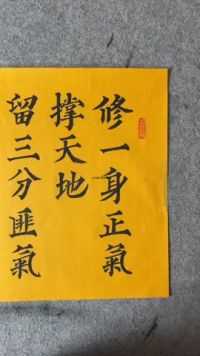 修一身正氣
撑天地
留三分匪氣